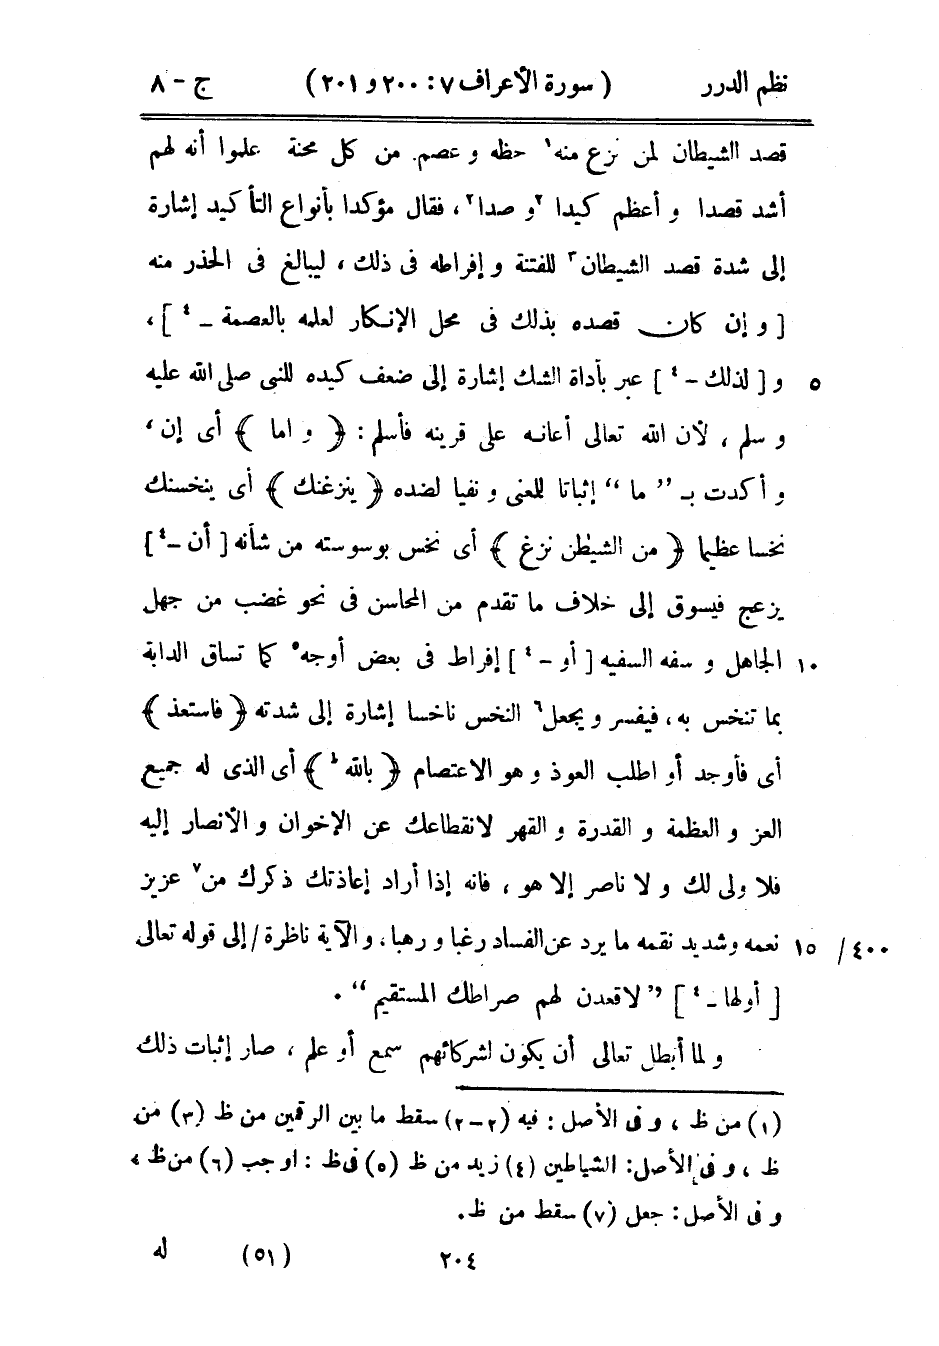 نظم الدرر ( سورة الأعراف ٧ : ٢٠٠ و ٢٠١ ) ج - ٨
قصد الشيطان لمن نزع منه١ حظه و عصم من كل محنة علموا أنه لهم
أشد قصدا و أعظم كيدا ٢و صدا٢ ، فقال مؤكدا بأنواع التأكيد إشارة
إلى شدة قصد الشيطان٣ للفتنة و إفراطه فى ذلك ، ليبالغ فى الحذر منه
[ و إن كان قصده بذلك فى محل الإنكار لعلمه بالعصمة - ٤ ] ،
٥ و [ لذلك - ٤ ] عبر بأداة الشك إشارة إلى ضعف كيده للنبى صلى الله عليه
و سلم ، لأن الله تعالى أعانه على قرينه فأسلم : ﴿ و اما ﴾ أى إن ،
و أكدت بـ ” ما “ إثباتا للعنى و نفيا لضده ﴿ ينزغنك ﴾ أى ينخسنك
نخسا عظيما ﴿ من الشيطٰن نزغ ﴾ أى نخس بوسوسته من شأنه [ أن - ٤ ]
يزعج فيسوق إلى خلاف ما تقدم من المحاسن فى نحو غضب من جهل
١٠ الجاهل و سفه السفيه [ أو - ٤ ] إفراط فى بعض أوجه٥ كما تساق الدابة
بما تنخس به ، فيفسر و يجعل٦ النخس ناخسا إشارة إلى شدته ﴿ فاستعذ ﴾
أى فأوجد أو اطلب العوذ و هو الاعتصام ﴿ بالله ط ﴾ أى الذى له جميع
العز و العظمة و القدرة و القهر لانقطاعك عن الإخوان و الأنصار إليه
فلا ولى لك و لا ناصر إلا هو ، فانه إذا أراد إعاذتك ذكرك من٧ عزيز
٤٠٠/ ١٥ نعمه وشديد نقمه ما يرد عن الفساد رغبا و رهبا ، و الآية ناظرة / إلى قوله تعالى
[ أولها - ٤ ] ” لاقعدن لهم صراطك المستقيم “ .
و لما أبطل تعالى أن يكون لشركائهم سمع أو علم ، صار إثبات ذلك
(١) من ظ ، و فى الأصل : فيه (٢-٢) سقط ما بين الرقمين من ظ (٣) من
ظ ، و فى الأصل : الشياطين (٤) زيد من ظ (٥) فى ظ : اوجب (٦) من ظ ،
و فى الأصل : جعل (٧) سقط من ظ .
٢٠٤ (٥١) له